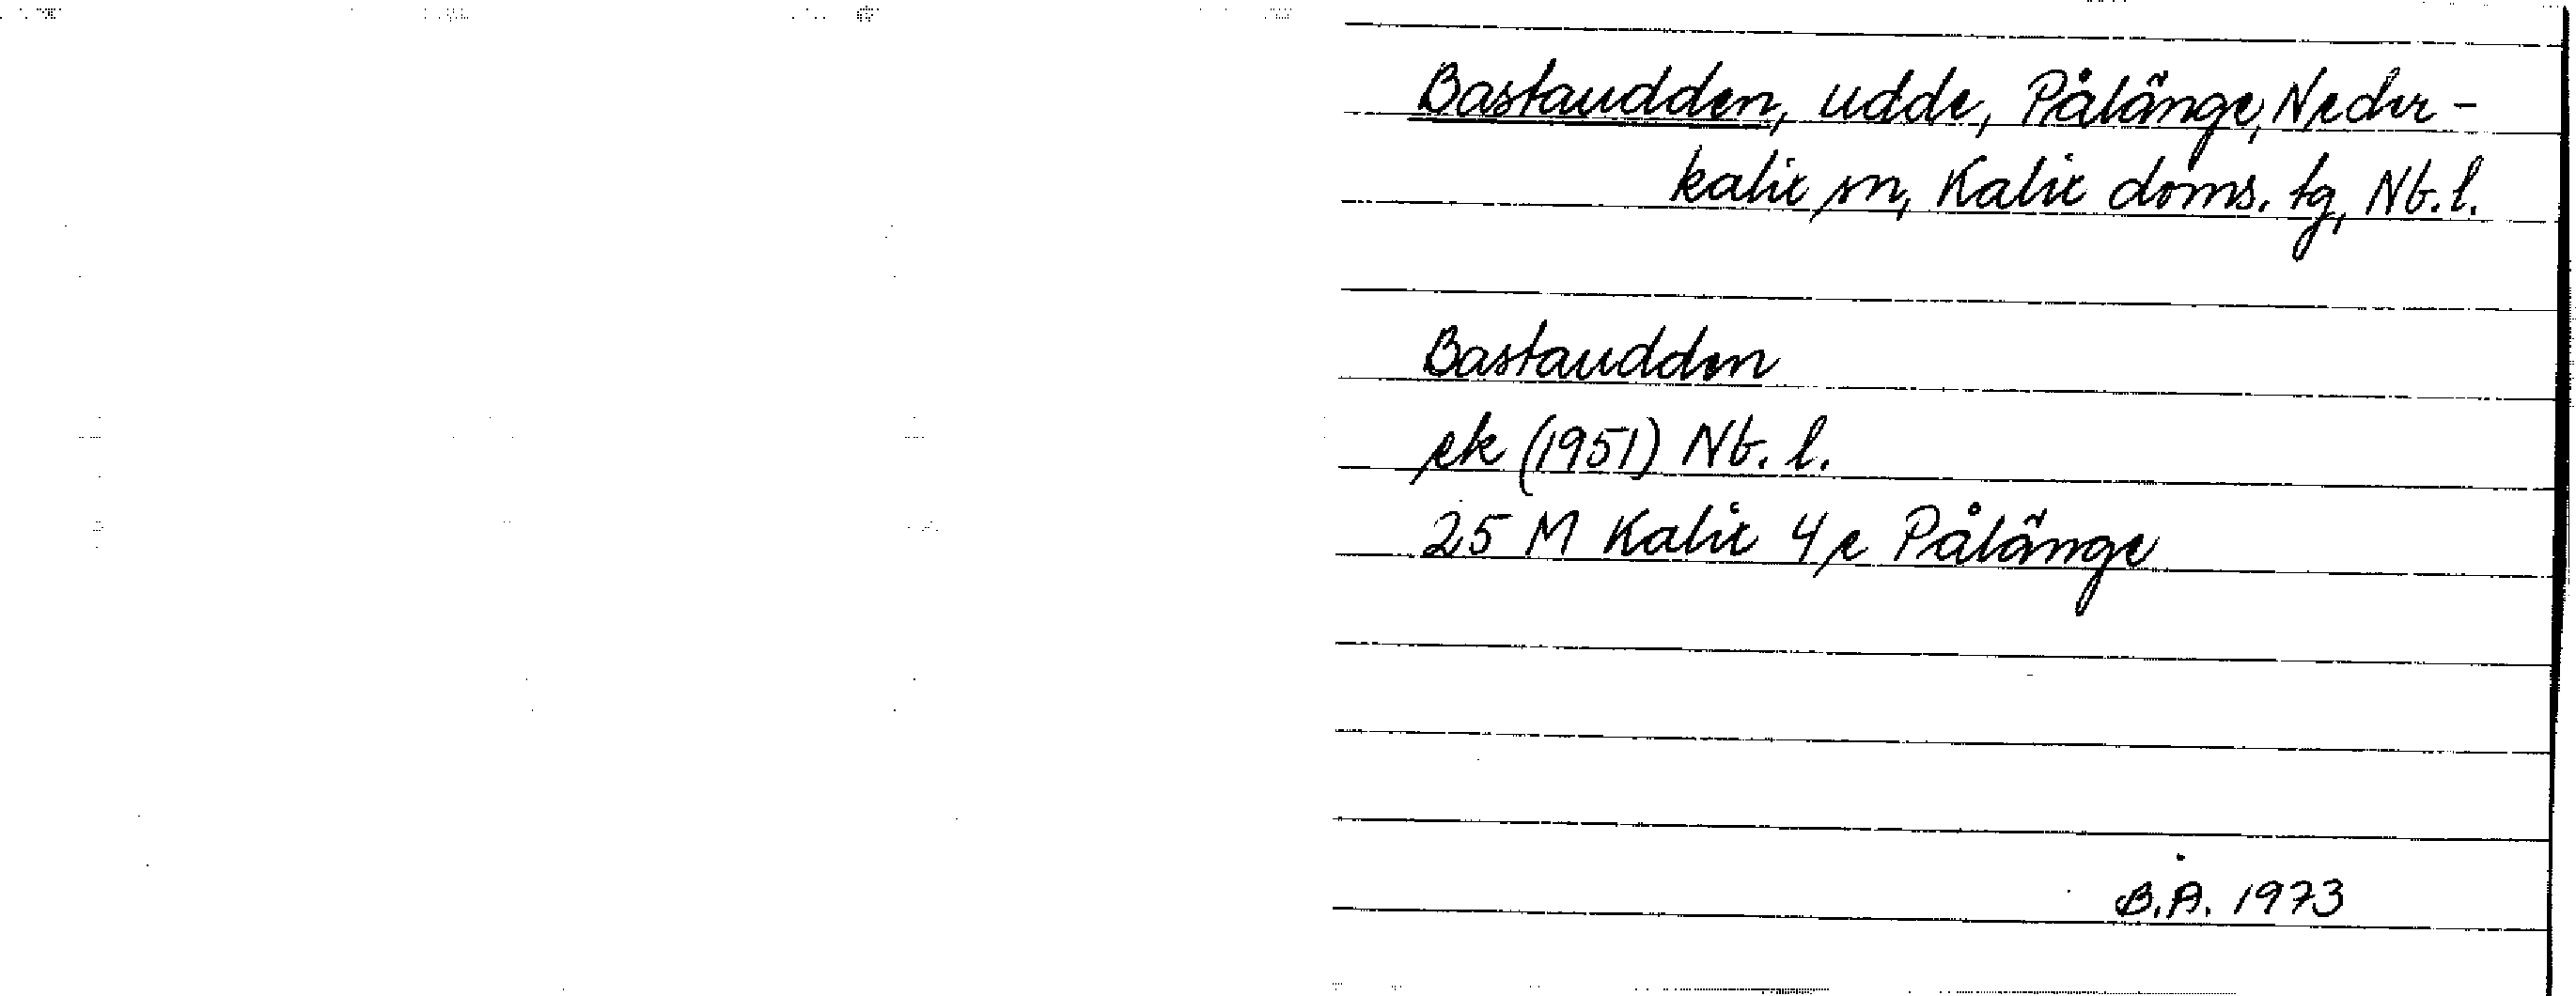 Bastaudden, udde, Pålänge, Neder-
kalix sn, Kalix doms. tg, Nb. l.
Bastaudden
ek (1951) Nb. l.
25 M Kalix 4 e Pålänge
B.A. 1973